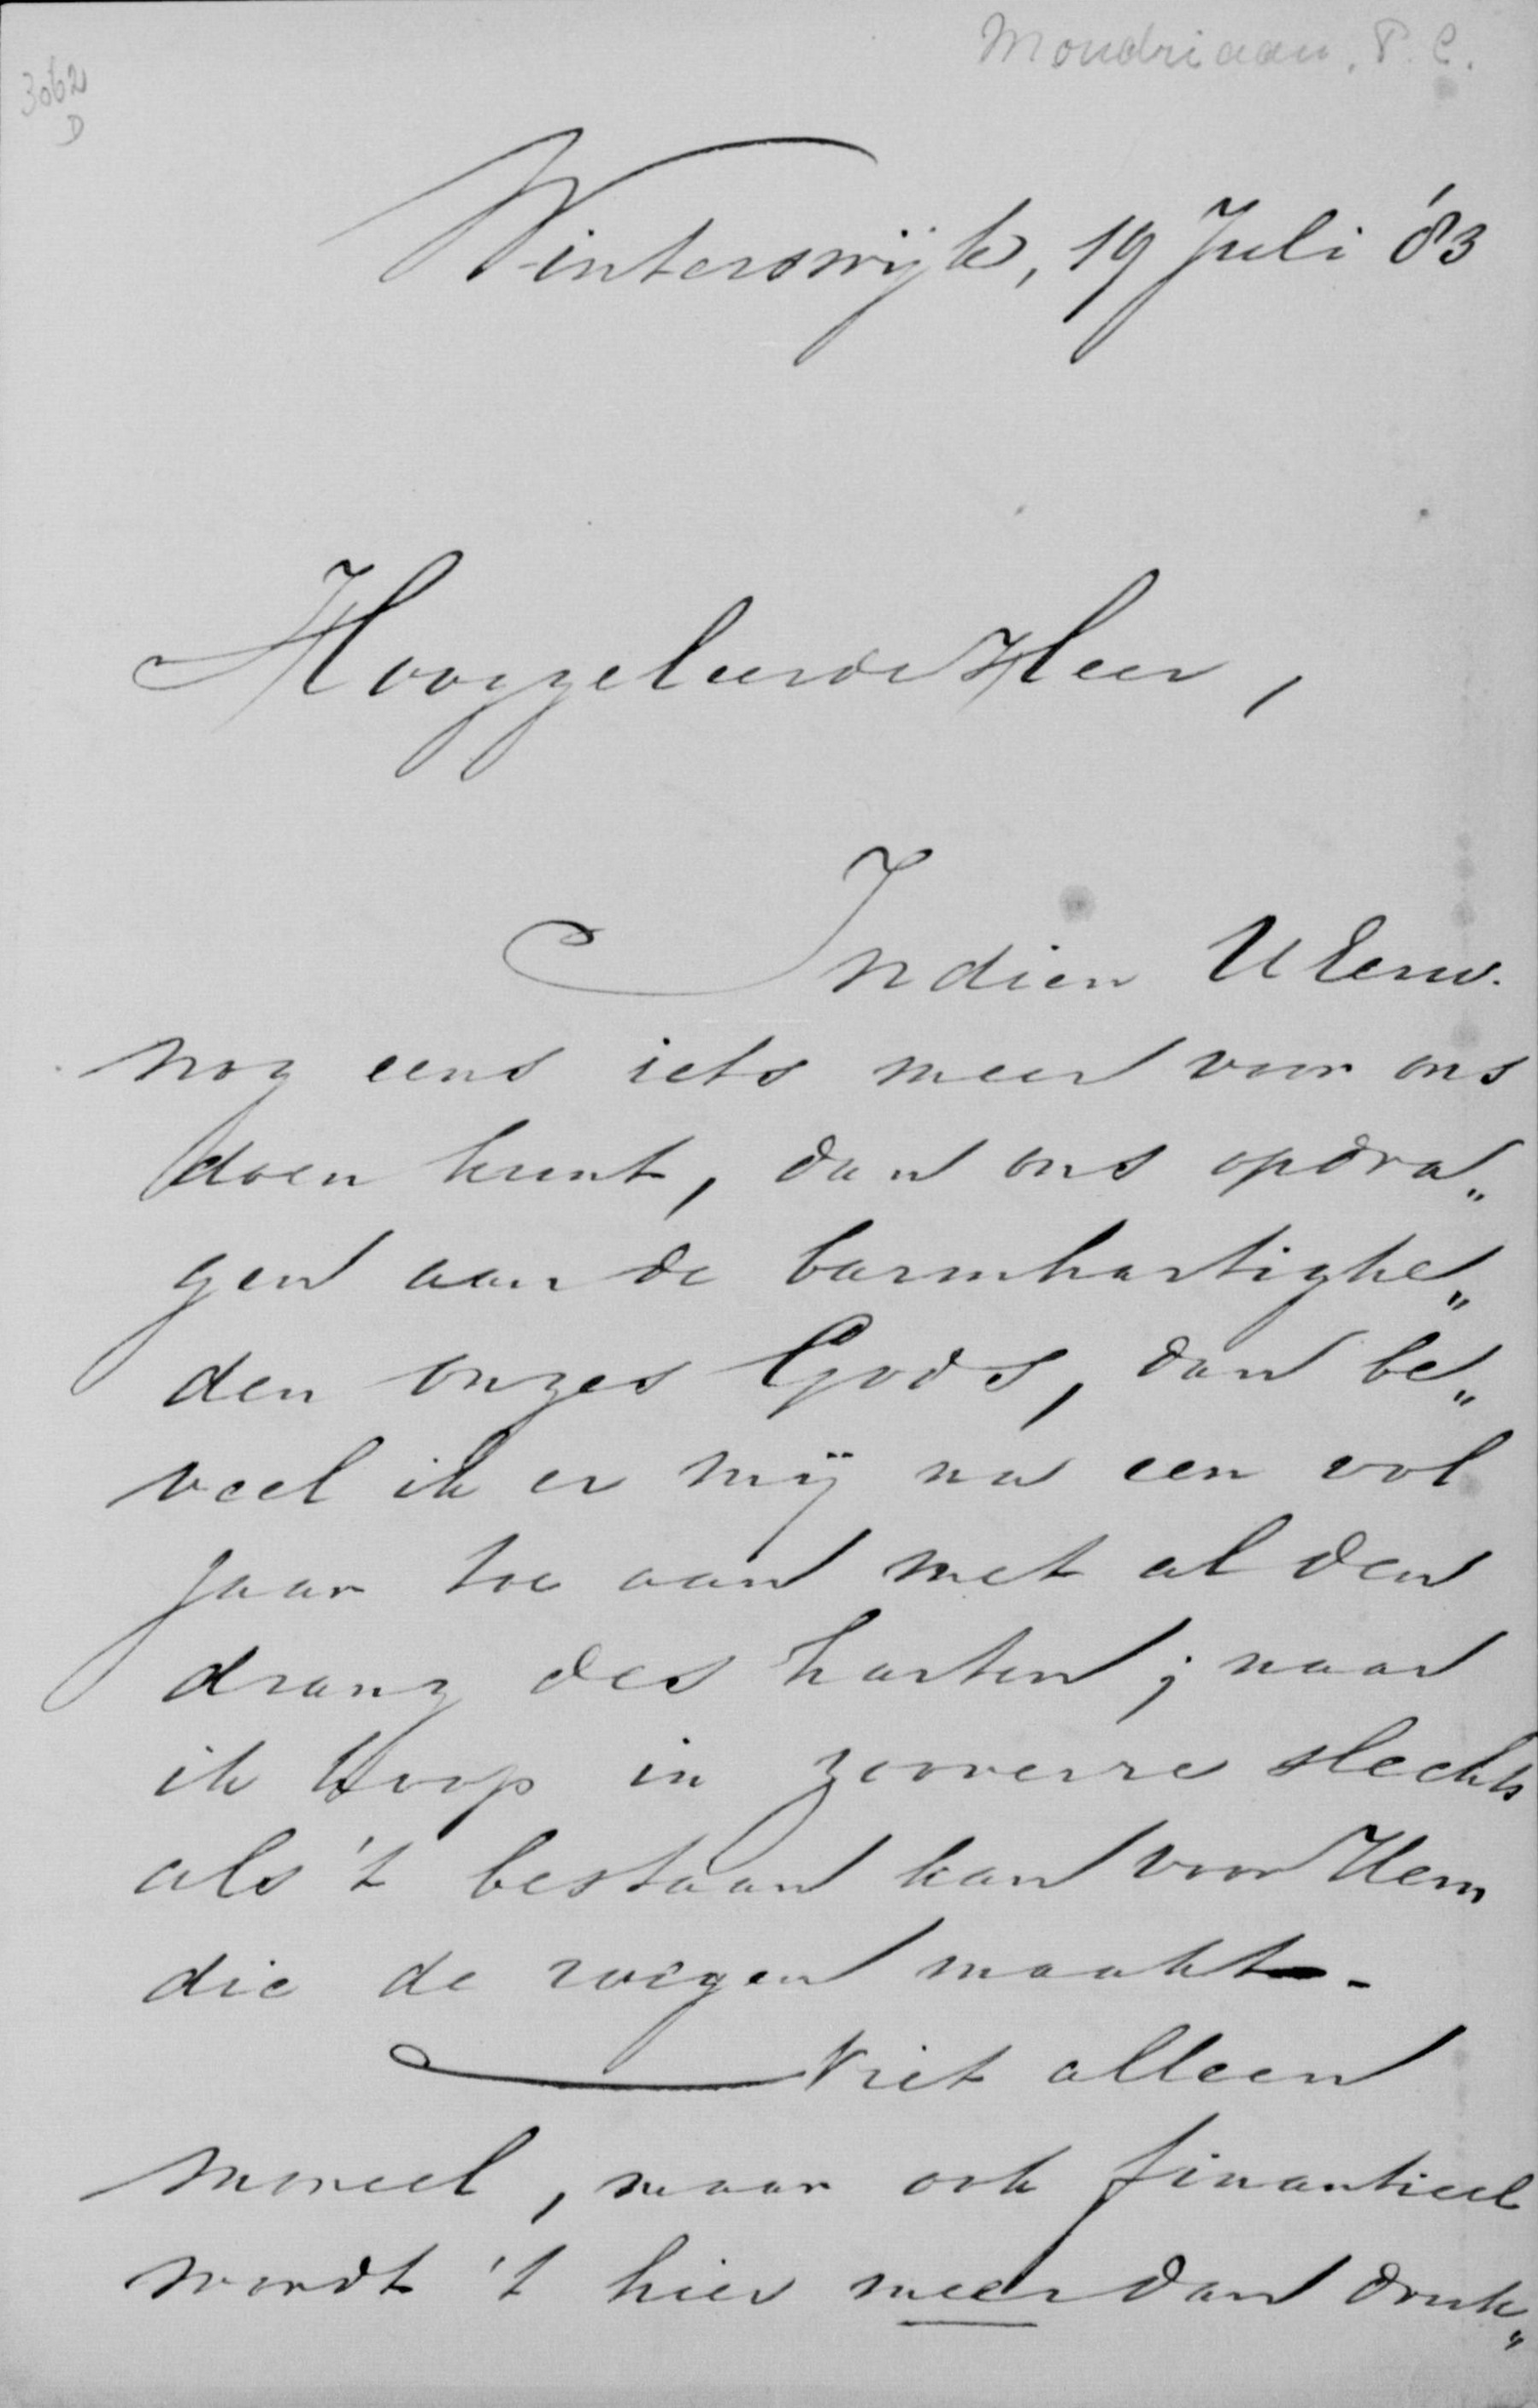 Mondriaan, P. C.
3062
D
Winterswijk, 19 Juli '83
Hooggeleerde Heer,
Indien UEerw.
nog eens iets meer voor ons
doen kunt, dan ons opdra„
gen aan de barmhartighe„
den onzes Gods, dan be„
veel ik er mij nu een vol
jaar toe aan met al den
drang des harten; maar
ik hoop in zooverre slechts
als 't bestaan kan voor Hem
die de wegen maakt.
Niet alleen
moreel, maar ook finantieel
wordt 't hier meer dan druk„